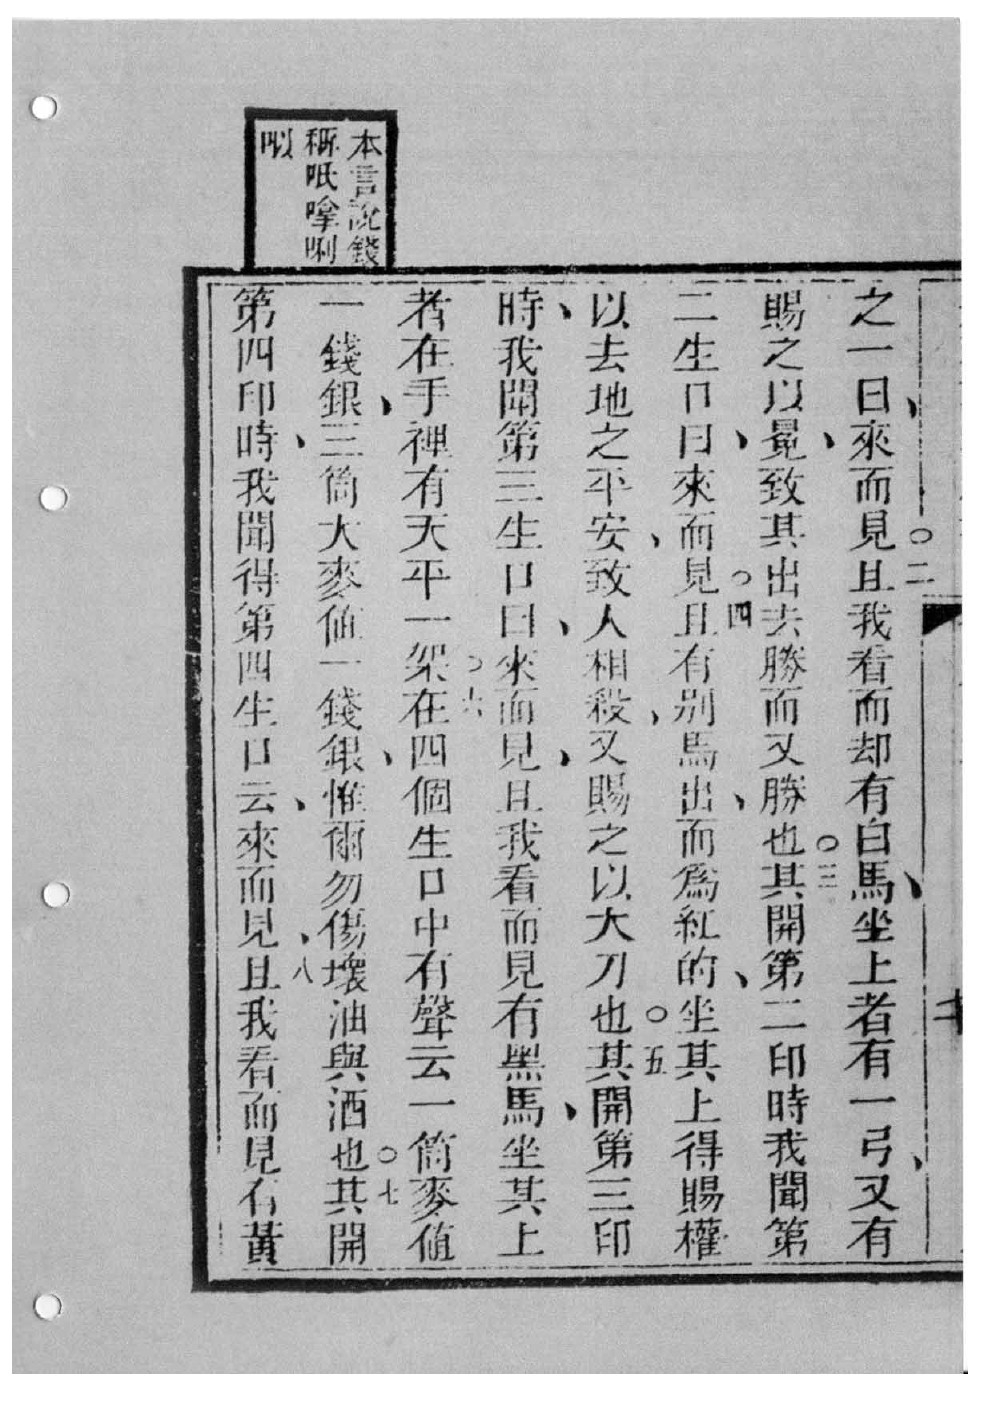 本言說錢
稱呧嗱唎
呶
之一曰、來而見○二且我看而却有白馬、坐上者有一弓、又有
賜之以冕、致其出去勝而又勝也○三其開第二印時我聞第
二生口曰、來而見○四且有別馬出、而為紅的、坐其上得賜權
以去地之平安、致人相殺、又賜之以大刀也○五其開第三印
時、我聞第三生口曰、來而見、且我看而見有黑馬、坐其上
者在手裡有天平一架○六在四個生口中有聲云一筒麥値
一錢銀、三筒大麥値一錢銀、惟爾勿傷壞油與酒也○七其開
第四印時、我聞得第四生口云、來而見、八且我看而見有黃